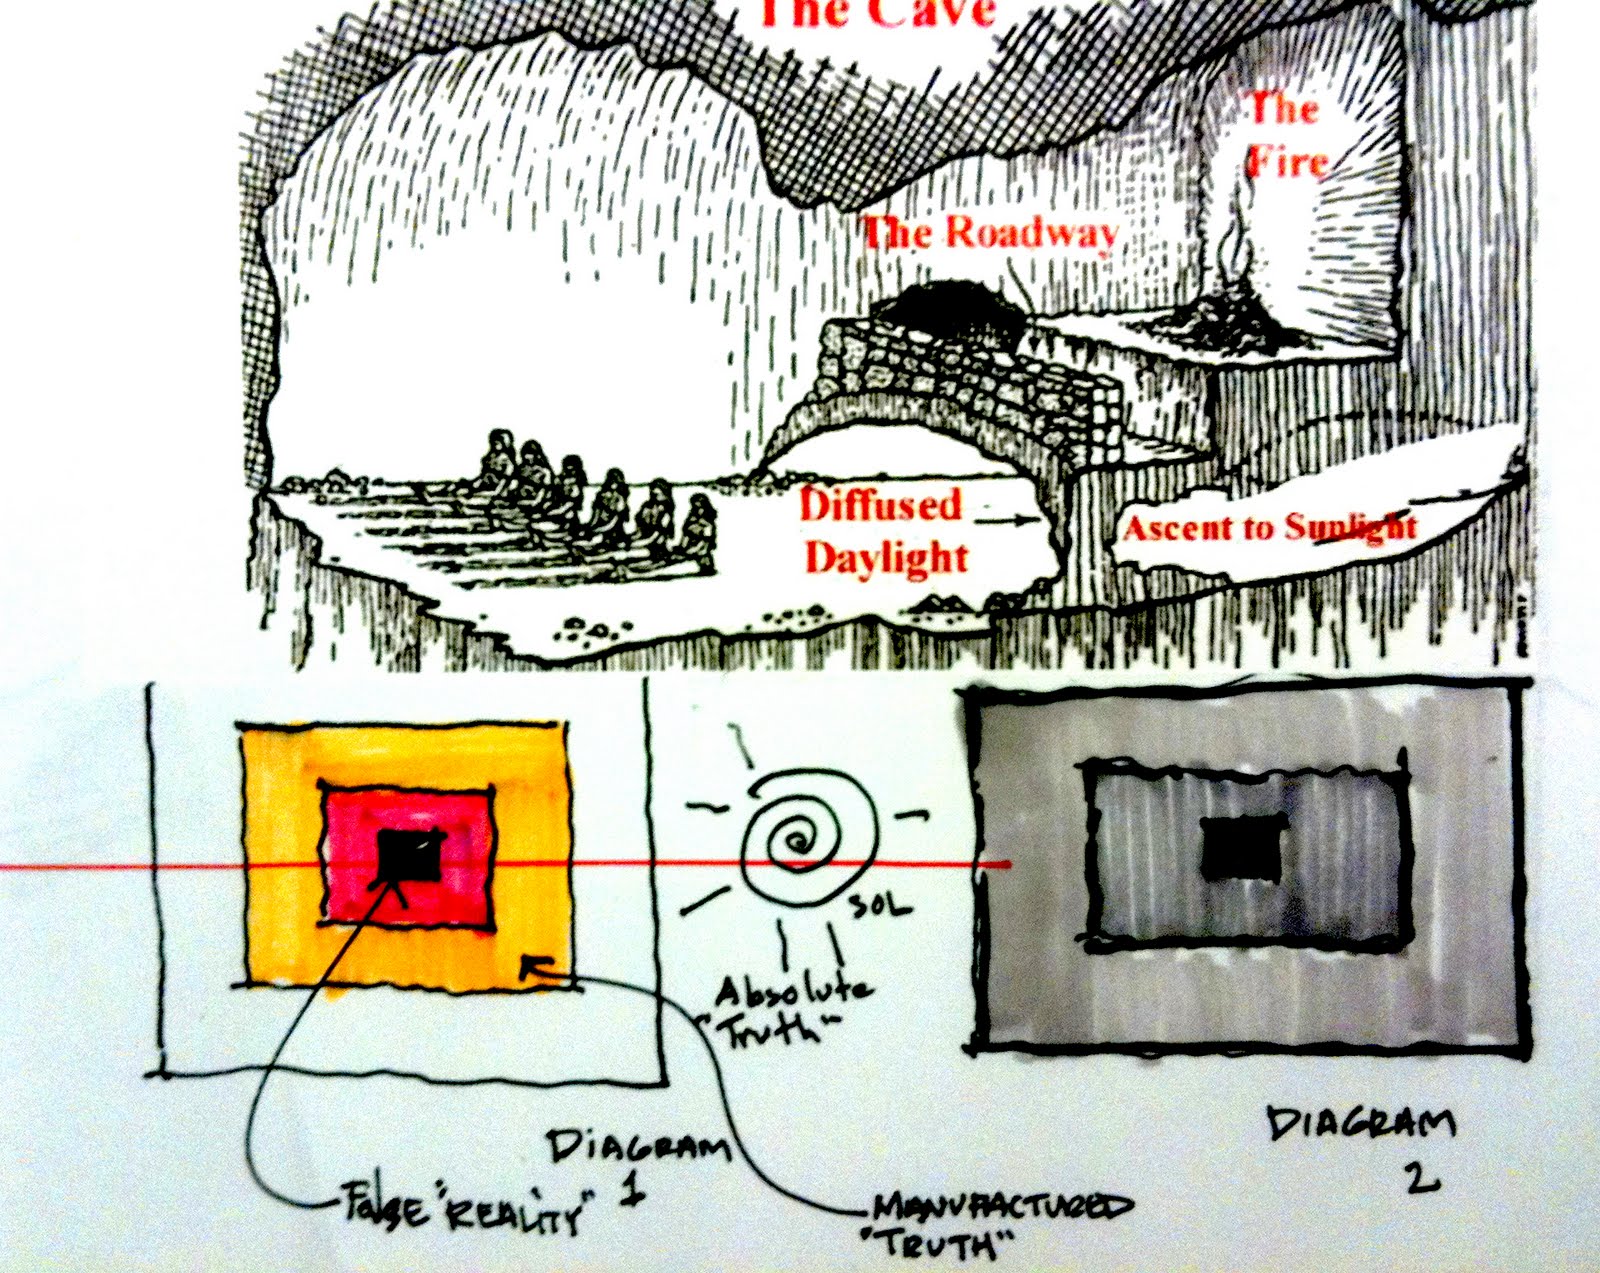 The Cave
The
Fire
The Roadway
Diffused
Daylight
Ascent to Sunlight
SOL
Absolute
"Truth"
DIAGRAM
1
DIAGRAM
2
False "REALITY"
MANUFACTURED
"TRUTH"